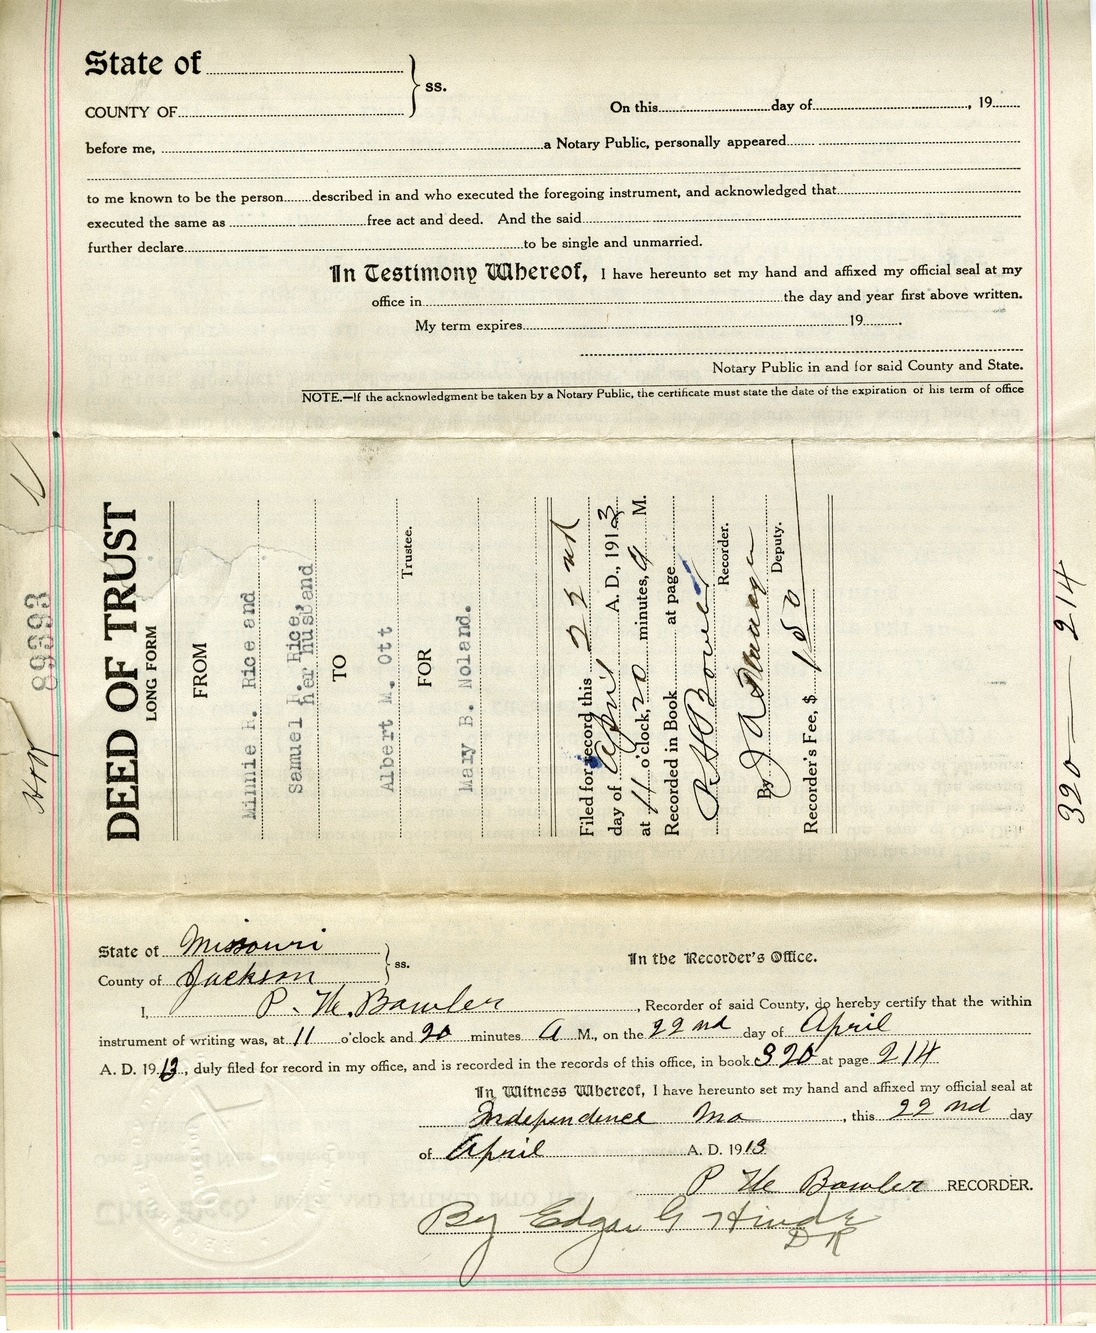 State of
COUNTY OF ss.
On this day of , 19
before me, a Notary Public, personally appeared
to me known to be the person described in and who executed the foregoing instrument, and acknowledged that
executed the same as free act and deed. And the said
further declare to be single and unmarried.
In Testimony Whereof, I have hereunto set my hand and affixed my official seal at my
office in the day and year first above written.
My term expires 19
Notary Public in and for said County and State.
NOTE.—If the acknowledgment be taken by a Notary Public, the certificate must state the date of the expiration of his term of office
89393
DEED OF TRUST
LONG FORM
FROM
Minnie R. Rice and
Samuel R. Rice,
her husband
TO
Albert M. Ott
Trustee.
FOR
Mary B. Noland.
Filed for record this 22nd
day of April A. D., 1913
at 11 o'clock, 20 minutes, a M.
Recorded in Book at page
Recorder.
By J A Deputy.
Recorder's Fee, $ 1 50
320 — 214
State of Missouri
County of Jackson ss.
In the Recorder's Office.
I, P. H. Bowler, Recorder of said County, do hereby certify that the within
instrument of writing was, at 11 o'clock and 20 minutes A M., on the 22nd day of April
A. D. 1913, duly filed for record in my office, and is recorded in the records of this office, in book 320 at page 214
In Witness Whereof, I have hereunto set my hand and affixed my official seal at
Independence Mo, this 22nd day
of April A. D. 1913
P H Bowler RECORDER.
By Edgar G Hinde
DR